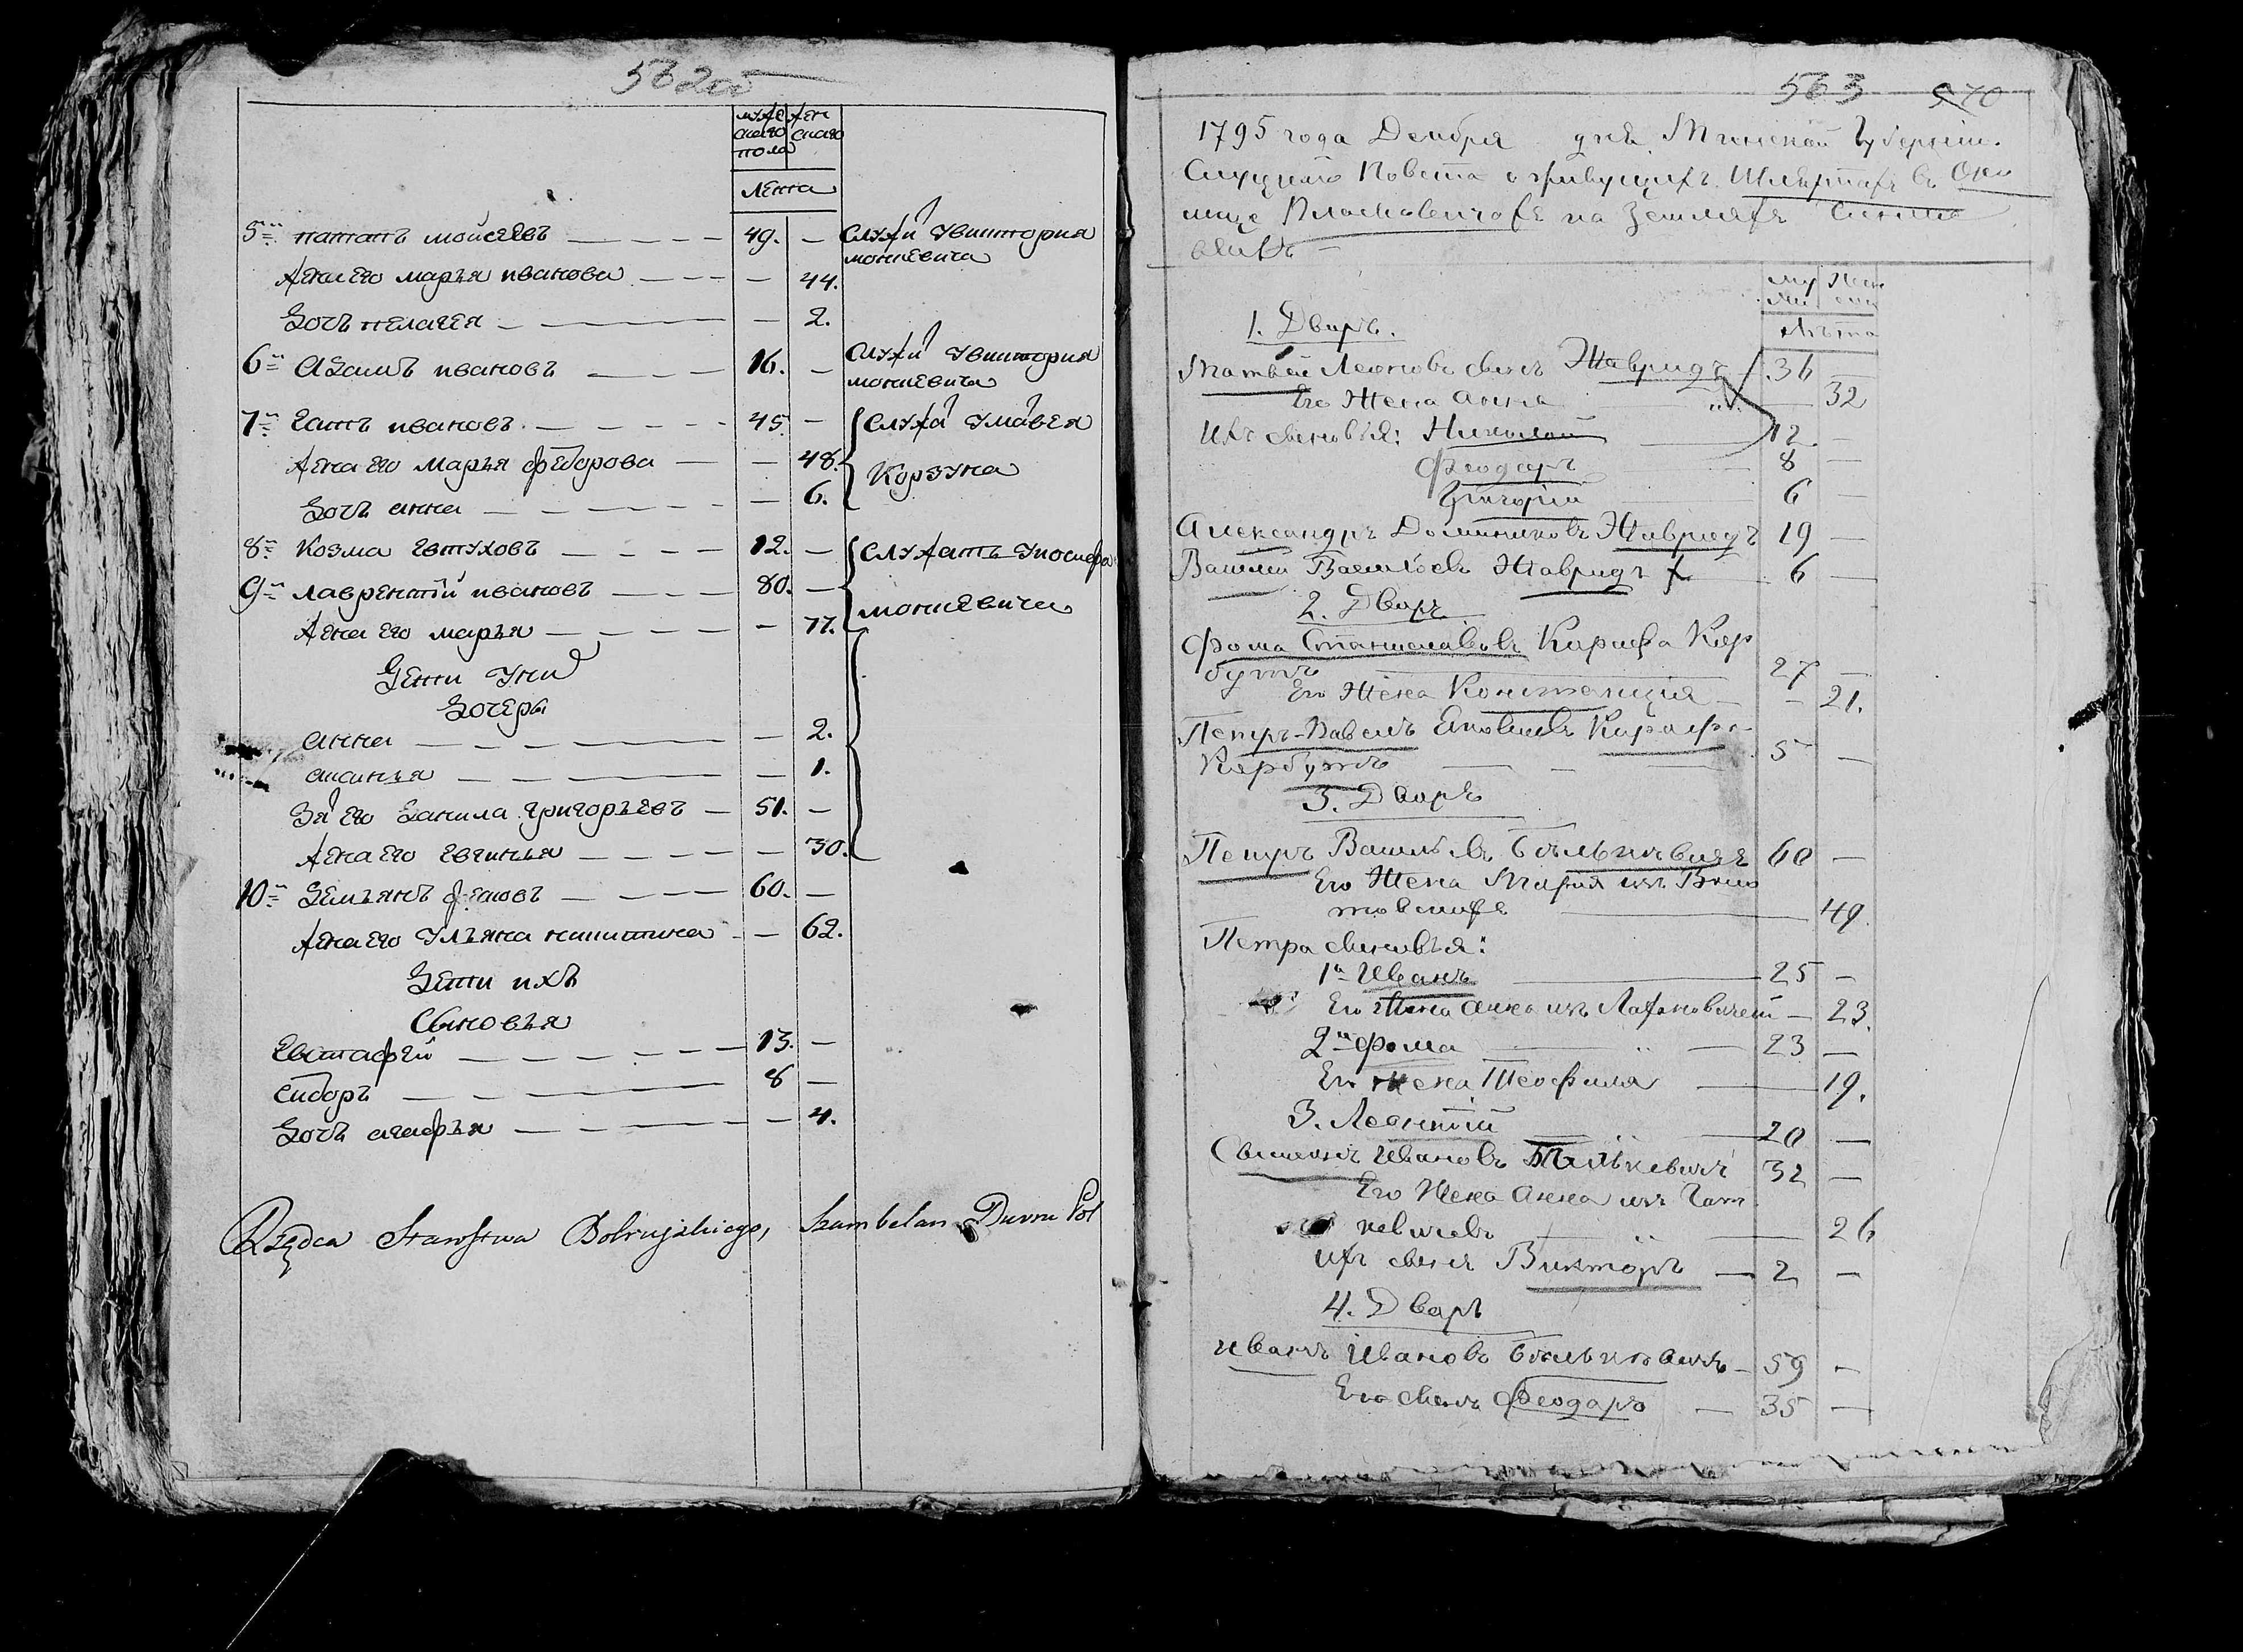 562об
мужескаго пола
женскаго
лѣта
5й патапъ мойсеевъ 49. — служи увинтория
монкевича
жена его марья иванова — 44.
дочь пелагея — 2.
6й адамъ ивановъ 16. — служи увинтория
монкевича
7й ивановъ 45. — служи
жена его марья федорова — 48. Корзуна
дочь анна — 6.
8й козма евтуховъ 12. — служатъ уиосифа
9й лаврентiй ивановъ 80. — монкевича
жена его марья — 77.
дети уни
дочеры
анна — 2.
аксинья — 1.
его данила григорьевъ 51. —
жена его евгинья — 30.
10й демьянъ 60. —
жена его ульяна никитина — 62.
дети ихъ
Сыновья
евстафей 13. —
сидоръ 8 —
дочь агафья — 4.
Rządca Starostwa Bobruyskiego, Szambelan Dworu Pol
563 570
1795 года Декабря дня Минской Губернiи.
Слуцкаго Повета о живущихъ Шляхтахъ въ Око
лице на земляхъ
Му жен
лѣта
1. Дворъ.
Матвей Леоновъ сынъ Жавридъ 36 —
Его Жена анна — 32
ихъ сыновья: Николай 12. —
Феодоръ 8 —
Григорiй 6 —
Александръ Доминиковъ Жавридъ 19 —
Василiй Васильевъ Жавридъ 6 —
2. Дворъ
Фома Станиславовъ Кирдѣ Кор
бутъ 27 —
Его Жена Констанцiя — 21.
Петръ-Павелъ Яковлевъ
Корбутъ 5 —
3. Дворъ
Петръ Васильевъ Бѣлькевичъ 60 —
Его Жена Марiя изъ
49.
Петра сыновья:
1й Иванъ 25 —
Его Жена анна изъ — 23.
2й Фома 23 —
Его жена Теофила 19.
3. Леонтiй 20 —
Ивановъ Бѣлькевичъ 32 —
Его Жена Анна изъ Гат
кевичовъ 26
ихъ сынъ Викторъ — 2 —
4. Дворъ
Иванъ Ивановъ Бѣлькевичъ — 59 —
Его сынъ Феодоръ — 35 —